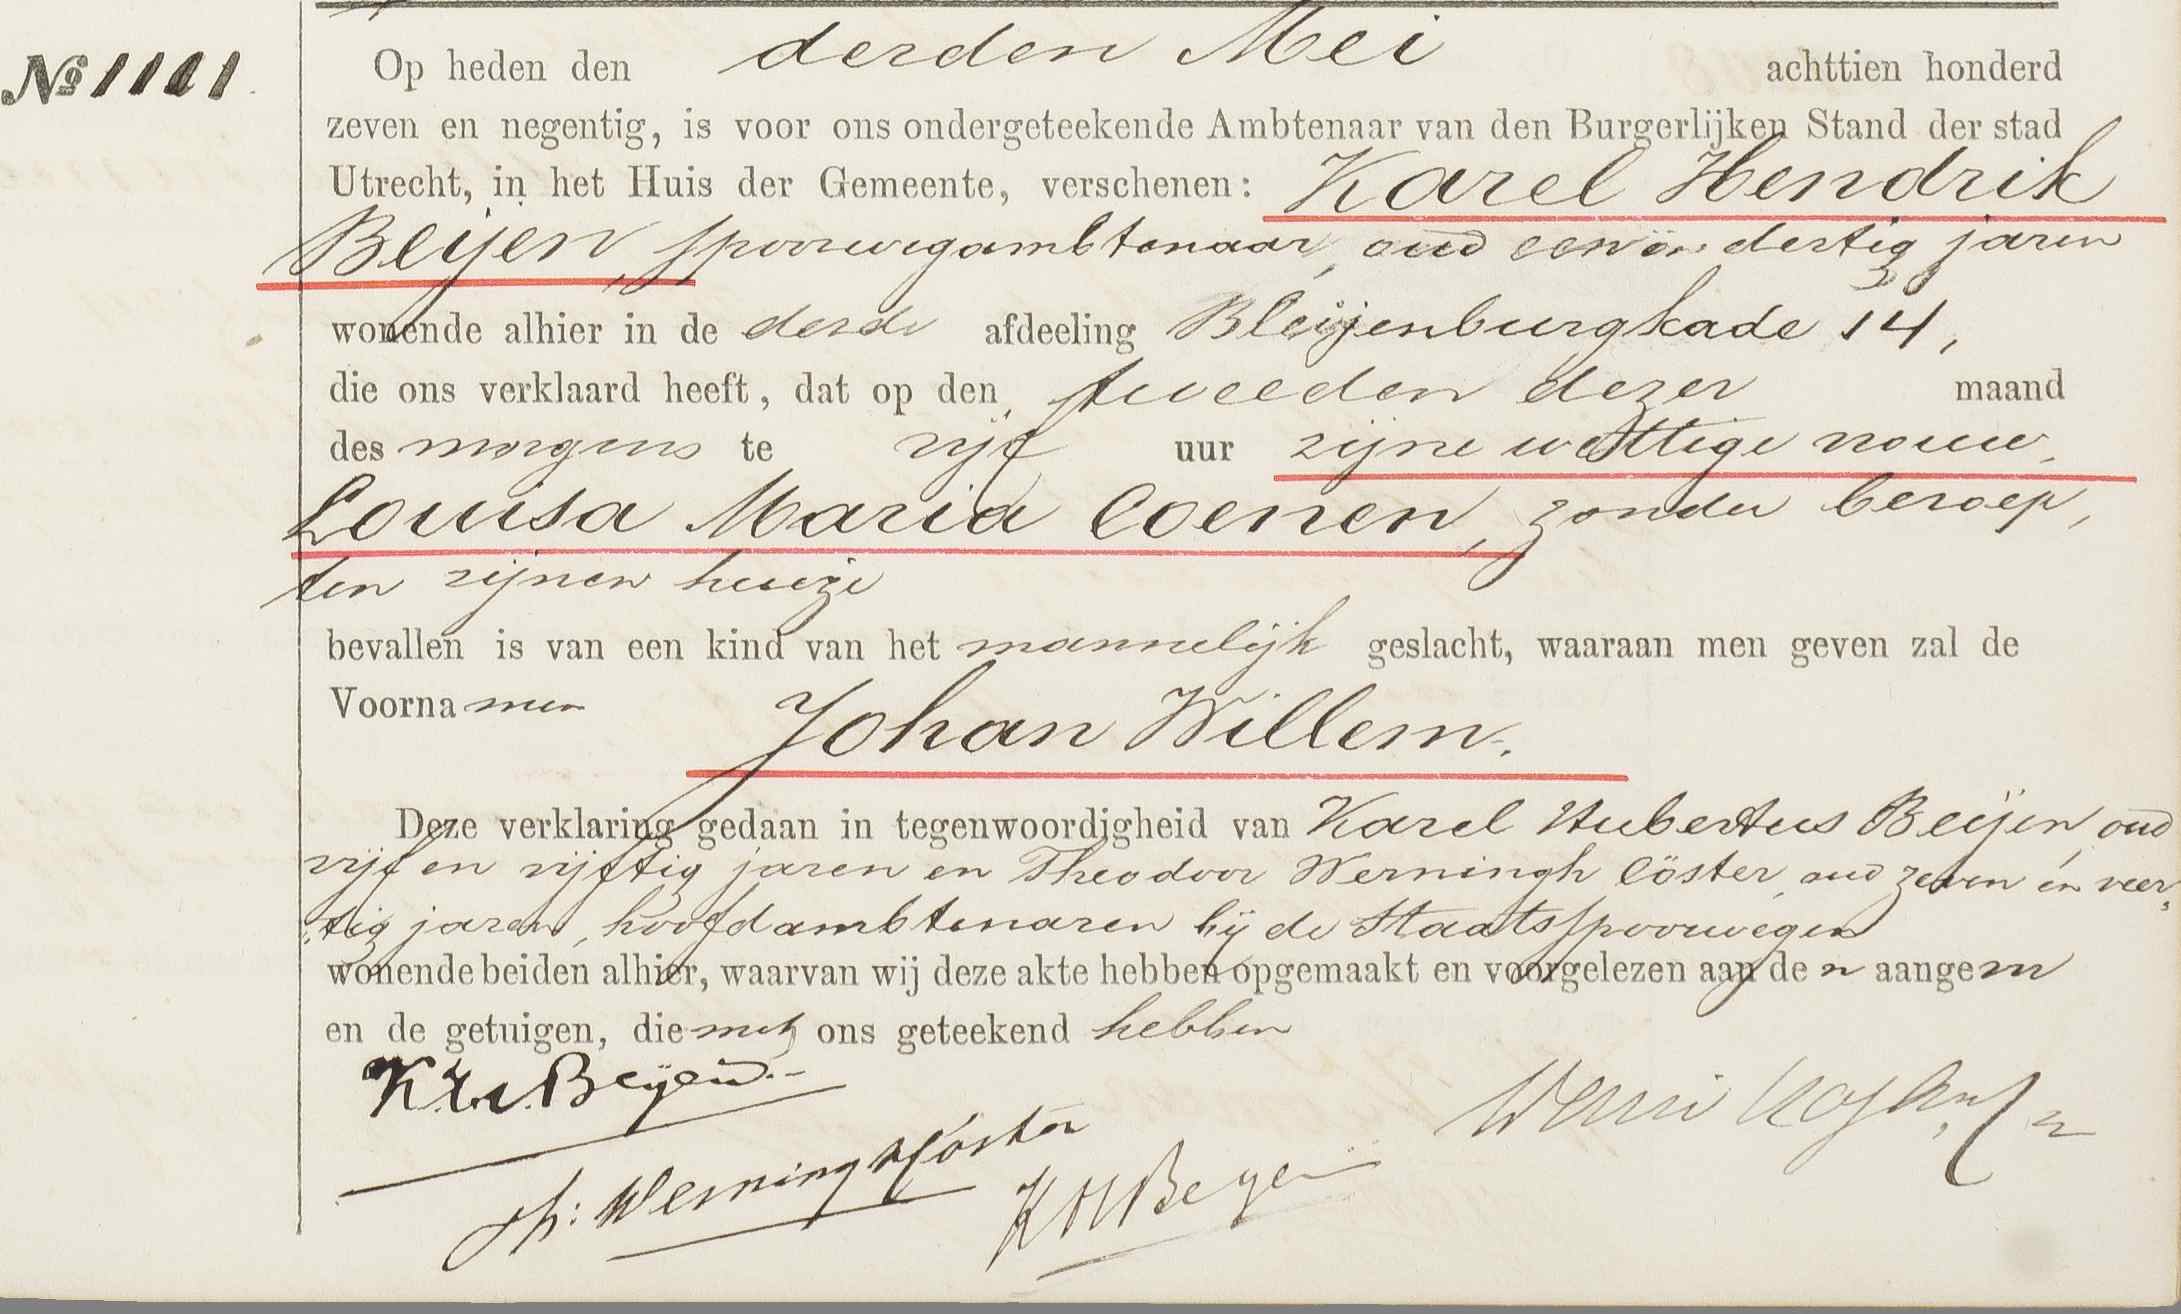 № 1101
Op heden den derden Mei achttien honderd
zeven en negentig, is voor ons ondergeteekende Ambtenaar van den Burgerlijken Stand der stad
Utrecht, in het Huis der Gemeente, verschenen: Karel Hendrik
Beijen, spoorwegambtenaar, oud een en dertig jaren
wonende alhier in de derde afdeeling Bleijenburgkade 14,
die ons verklaard heeft, dat op den tweeden dezer maand
des morgens te vijf uur zijne wettige vrouw,
Louisa Maria Coenen, zonder beroep,
ten zijnen huize
bevallen is van een kind van het mannelijk geslacht, waaraan men geven zal de
Voornamen Johan Willem.
Deze verklaring gedaan in tegenwoordigheid van Karel Hubertus Beijen, oud
vijf en vijftig jaren en Theodoor Werningh Cöster, oud zeven en veer
tig jaren, hoofdambtenaren bij de Staatsspoorwegen
wonende beiden alhier, waarvan wij deze akte hebben opgemaakt en voorgelezen aan den aangever
en de getuigen, die met ons geteekend hebben
K.H. Beijen
Th: Werningh Cöster
KHBeyen